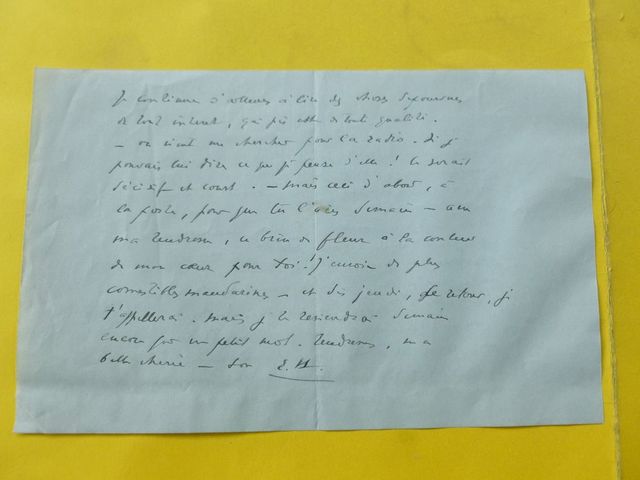 Je continue d'ailleurs à lire des choses dépourvues
de tout intérêt, qui plus est de toute qualité.
— on vient me chercher pour la radio. Si je
pouvais lui dire ce que je pense d'elle ! Ce serait
décisif et court. — Mais ceci d'abord, à
la poste, pour que tu l'aies demain — avec
ma tendresse, ce brin de fleur à la couleur
de mon cœur pour toi ! J'envoie de plus
comestibles mandarines — et dès jeudi, de retour, je
t'appellerai. Mais je te redirai demain
encore par un petit mot. Tendresses, ma
belle chérie — ton E.H.